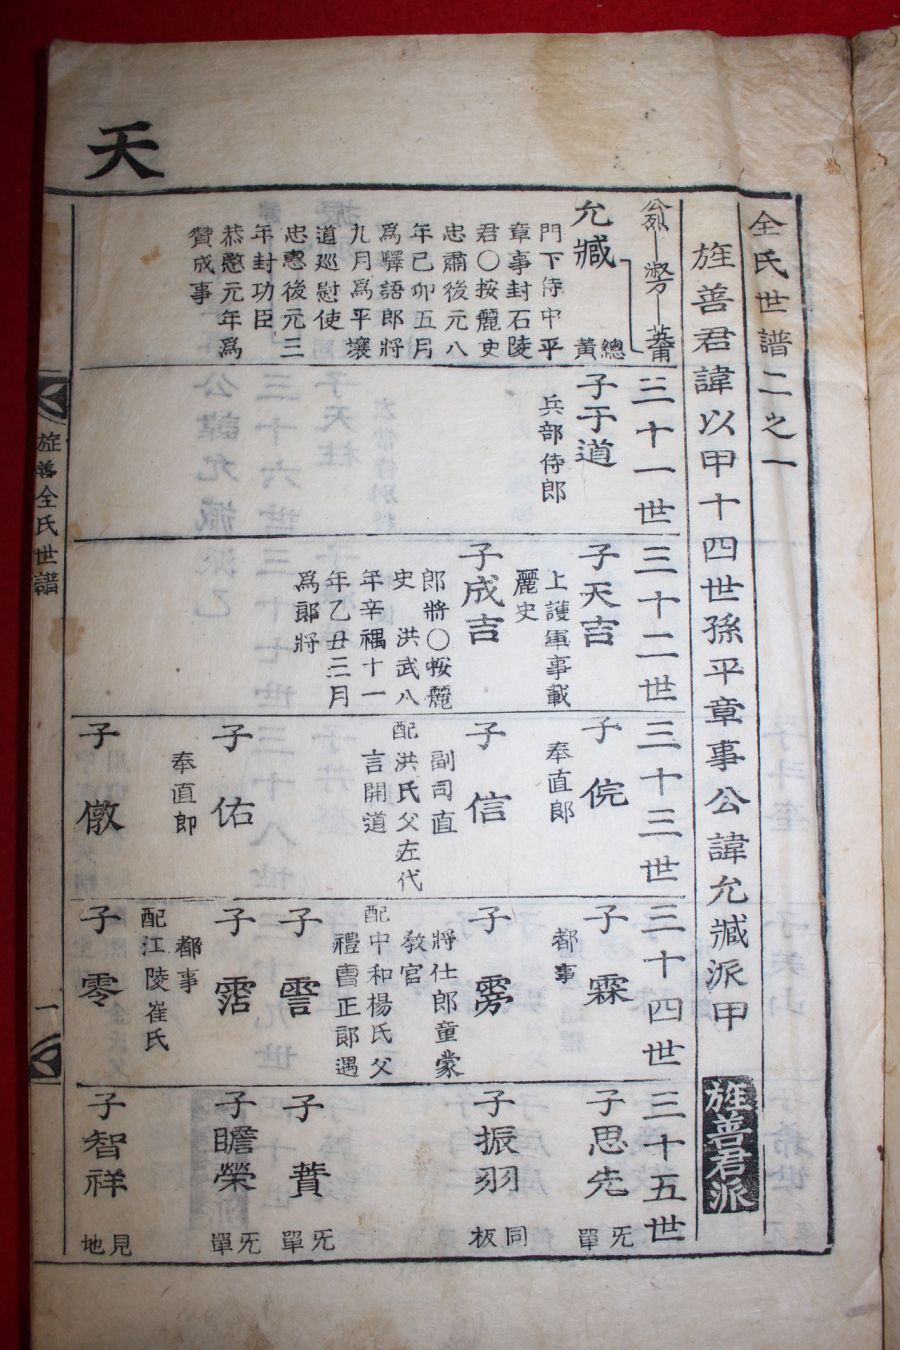 天
全氏世譜二之一
旌善君諱以甲十四世孫平章事公諱允臧派甲
旌善君派
允臧
門下侍中平
章事封石陵
君〇按麗史
忠肅後元八
年己卯五月
為驛語郎將
九月為平壤
道巡慰使
忠惠後元三
年封功臣
恭愍元年為
贊成事
總
黃
三十一世
子于道
兵部侍郎
三十二世
子天吉
上護軍事載
麗史
子成吉
郎將〇按麗
史 洪武八
年辛禑十一
年乙丑三月
為郎將
三十三世
子 俒
奉直郎
子 信
副司直
配洪氏父左代
言開道
子 佑
奉直郎
子 儆
三十四世
子 霖
都事
子 雱
將仕郎童蒙
敎官
配中和楊氏父
禮曹正郎遇
子 䨛
子 霑
都事
配江陵崔氏
子 零
三十五世
子思先
旡單
子振羽
同板
子 蕡
旡單
子瞻榮
旡單
子智祥
見地
旌善全氏世譜
一